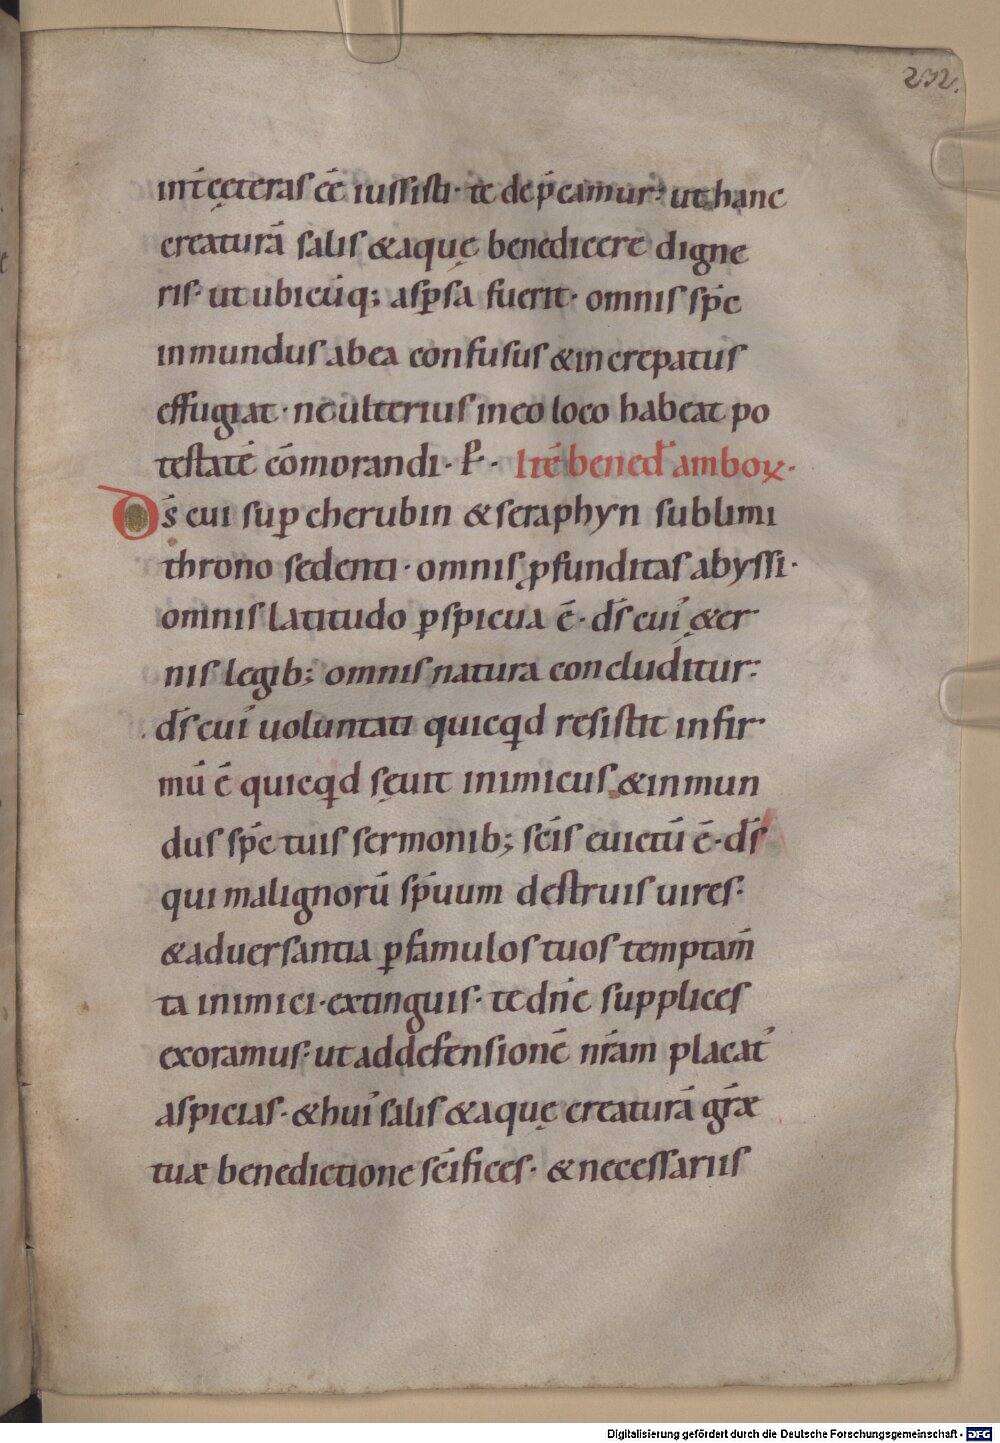 232.
int̄ cęteras eē iussisti· te dep̄camur· ut hanc
creaturā salis & aquę benedicere digne
ris· ut ubicūq; asp̱sa fuerit· omnis sp̄c
inmundus ab ea confusus & increpatus
effugiat· ne ulterius in eo loco habeat po
testatē cōmorandi· P̄· Itē bened̄ amboꝝ·
Ds̄ cui sup̱ cherubin & seraphyn sublimi
throno sedenti· omnis ꝓfunditas abyssi·
omnis latitudo ꝑspicua ē· ds̄ cui᾽ &er
nis legib; omnis natura concluditur·
ds̄ cui᾽ uoluntati quicqd resistit infir
mū ē quicqd sęuit inimicus & inmun
dus sp̄c tuis sermonib; sc̄is euictū ē· ds̄
qui malignorū sp̄uum destruis uires·
& aduersantia ꝑ famulos tuos temptam̄
ta inimici· extinguis· te dn̄e supplices
exoramus· ut ad defensionē nr̄am placat᾽
aspicias· & hui᾽ salis & aquę creaturā gr̄æ
tuæ benedictione sc̄ifices· & necessariis
Digitalisierung gefördert durch die Deutsche Forschungsgemeinschaft - DFG